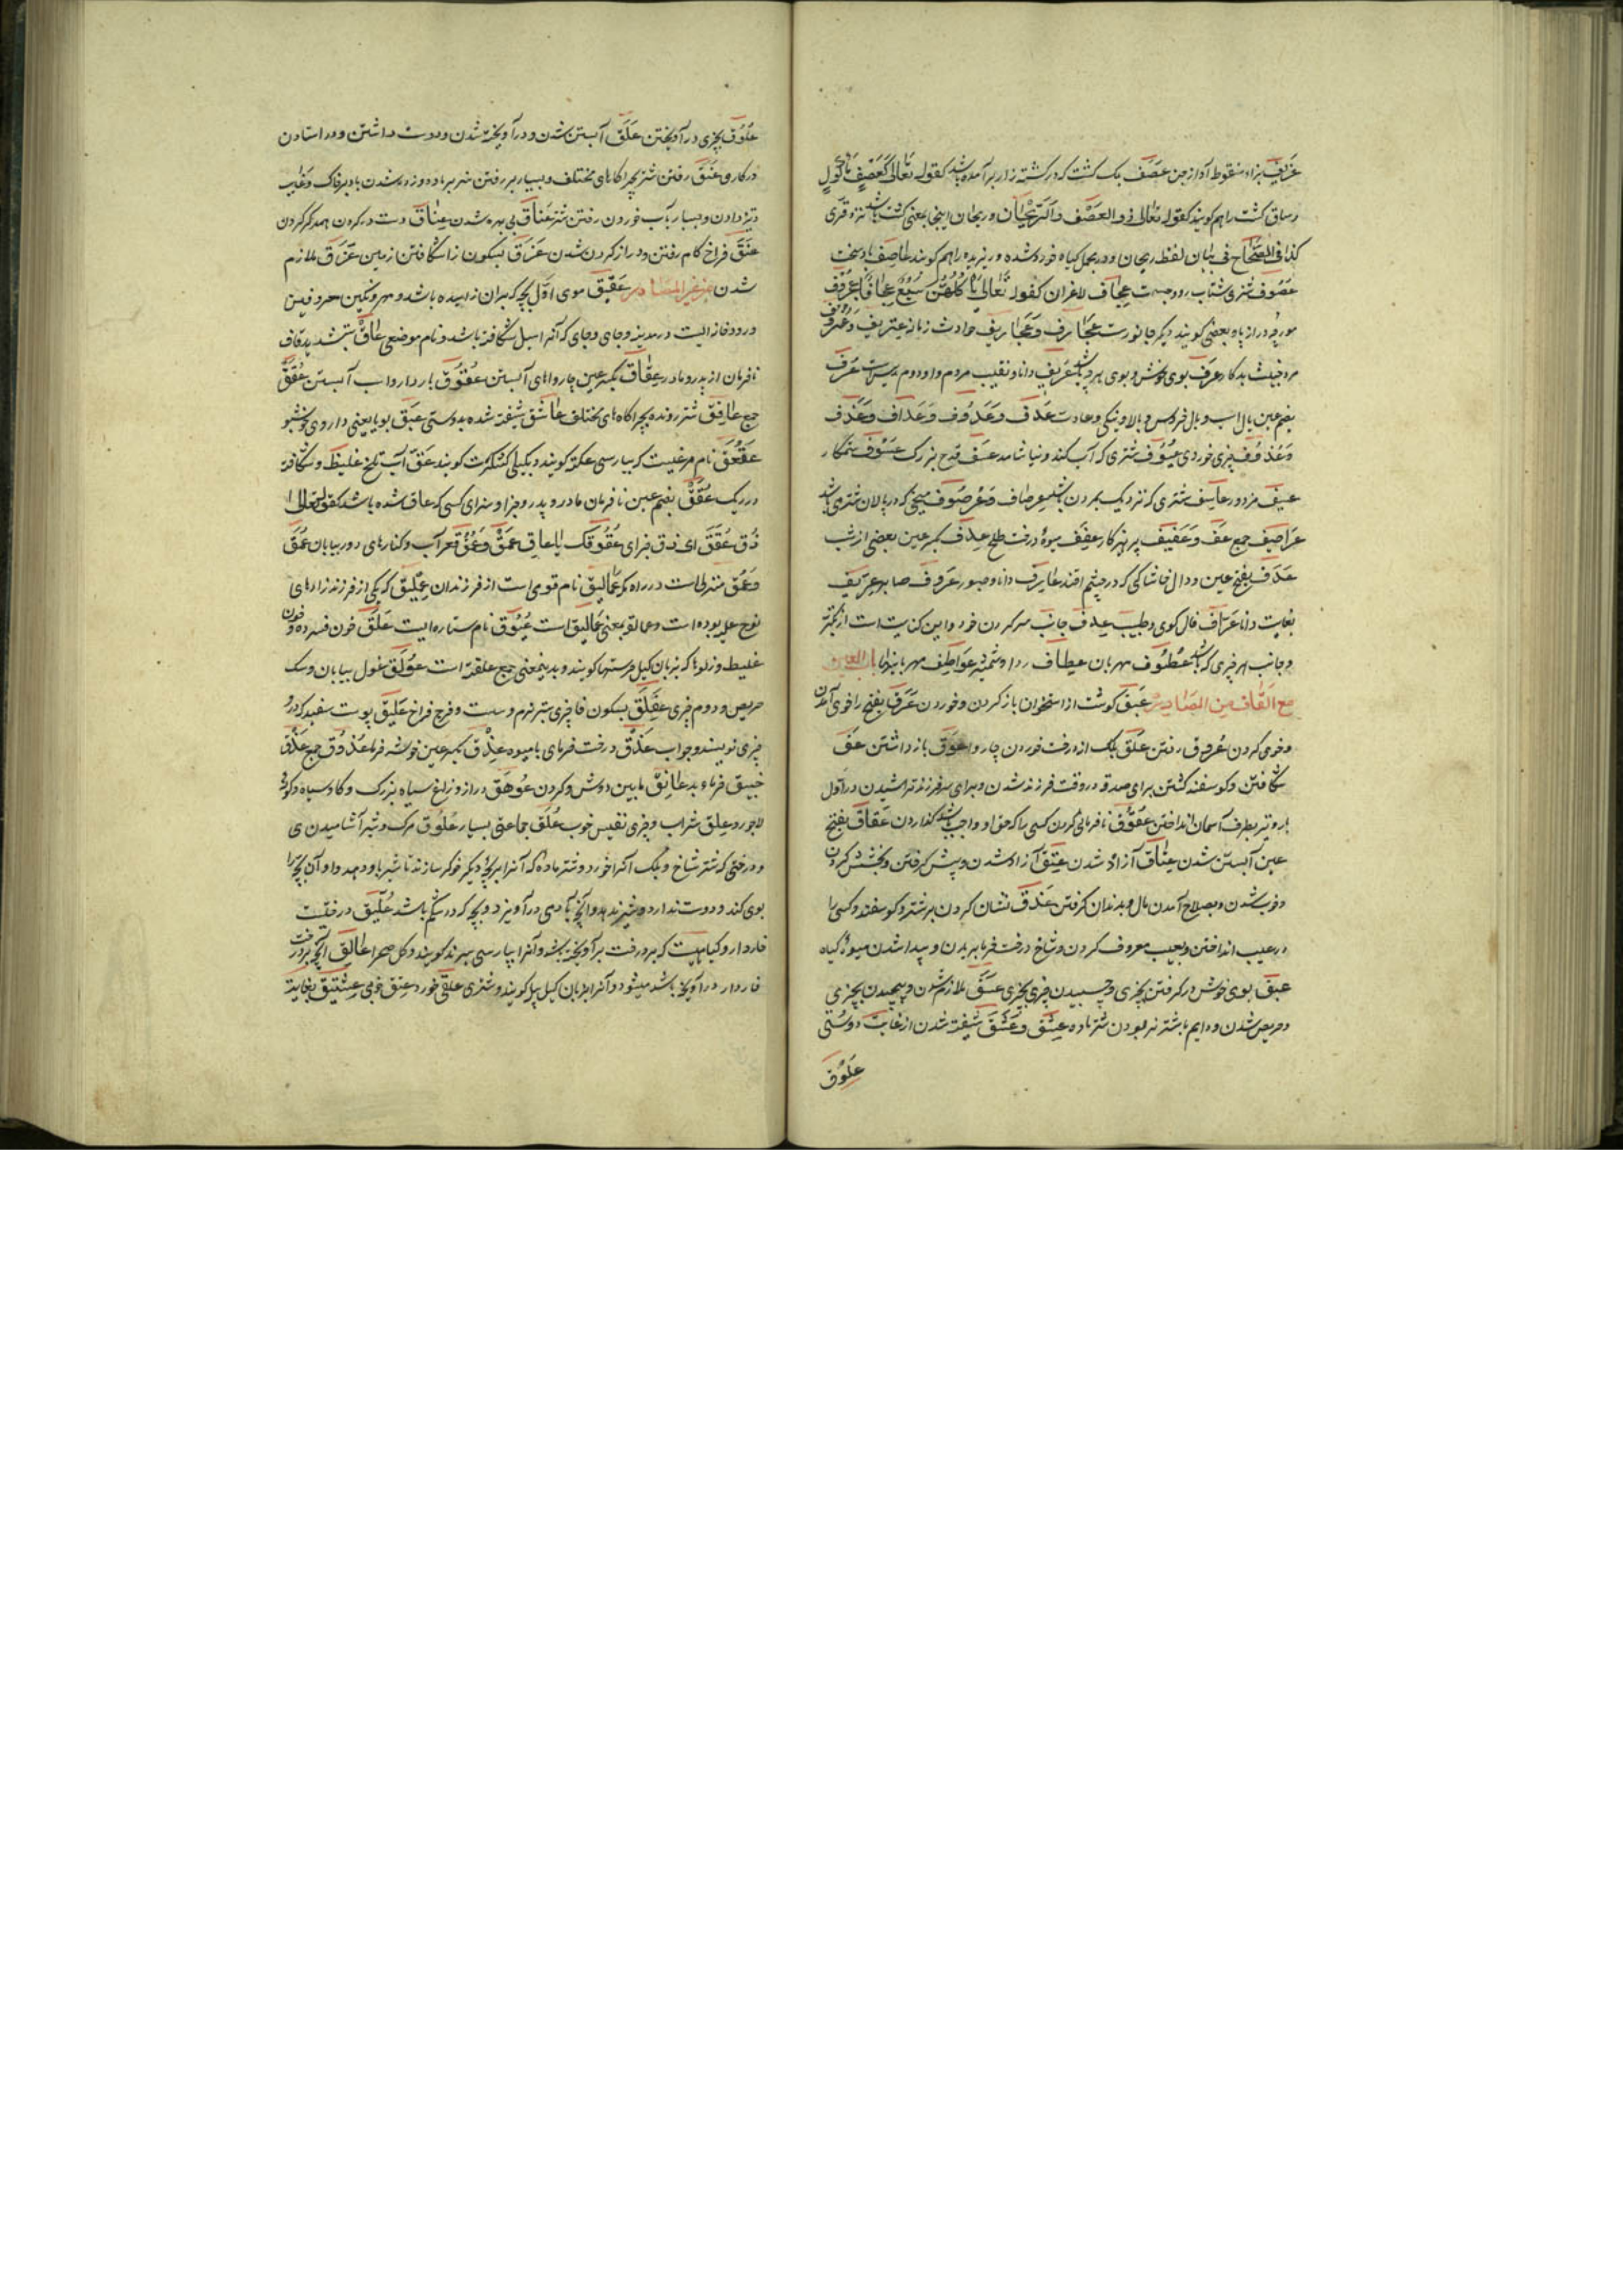 عزیف بزاء منقوطه آواز جن عصف برک کشت که در کشته زار بر آمده باشد کقوله تعالی کعصف مأکول
وساق کشت را هم کویند کقوله تعالی ذو العصف والریحان وریحان اینجا بمعنی
کذا فی الصحاح فی بیان لفظ ریحان ودر مجمل کیاه خورد شده وریزیده را هم کویند عاصف باد سخت
عصوف شتری شتاب رو عجاف لاغران کقوله تعالی یأکلهن سبع عجاف
مورچه دراز پا وبعضی کویند دیکر جانورست عجارف وعجاریف حوادث زمانه عتریف
مرد خبیث بدکار عرف بوی خوش وبوی بد عریف دانا ونقیب مردم عرف
بضم عین یال اسب ویال خروس وبالا ونیکی وعادت عدف وعدوف وعداف وعذف
وعذوف چیزی خوردی عیوف شتری که آب کند ونیاشامد عسف قدح بزرک عسوف ستمکار
عسیف مزدور عاسف شتری که نزدیک بمردن باشد عرصاف وعرصوف میخی که در پالان شتری باشد
عراصیف جمع عف وعفیف پرهیزکار عفف میوه درخت طلح عدف بکسر عین بعضی از شب
عدف بفتح عین ودال خاشاکی که در چشم افتد عارف دانا وصبور عروف صابر عریف
بغایت دانا عراف فال کوی وطبیب عطف جانب سر کردن خود واین کنایت است از تکبر
وجانب هر چیزی که باشد عطوف مهربان عطاف ردا وشمشیر عواطف مهربانیها باب العین
مع القاف من المصادر عبق کوشت از استخوان باز کردن وخوردن عرق بفتح را خوی آمدن
وخوی کردن عروق رفتن علق برک از درخت خوردن چاروا عوق باز داشتن عق
شکافتن وکوسفند کشتن برای صدقه در وقت فرزند شدن وبرای سر فرزند تراشیدن در اول
بار وتیر بطرف آسمان انداختن عقوق نافرمانی کردن کسی را که حق او واجب باشد کذاردن عقاق بفتح
عین آبستن شدن عتاق آزاد شدن عتق آزاد شدن وپیش کرفتن وبخشش کردن
وخوب شدن وبصلاح آمدن مال وبدندان کرفتن عذق نشان کردن بر شتر وکوسفند وکسی را
در عیب انداختن وبعیب معروف کردن وشاخ درخت خرما بریدن وپیدا شدن میوه کیاه
عبق بوی خوش در کرفتن بچیزی وچسبیدن چیزی بچیزی عسق ملازم شدن وپیچیدن بچیزی
وحریص شدن ودایم با شتر نر بودن شتر ماده عشق وعشق شیفته شدن از غایت دوستی
علوق
علوق بچیزی در آویختن علق آبستن شدن ودر آویخته شدن ودوست داشتن ودر استادن
در کاری عنق رفتن شتر بچراکاهای مختلف وبسیار بر رفتن
وتیز دادن وبسیار بآب خوردن رفتن شتر عناق بی بهره شدن عناق دست در کردن همدکر کردن
عنق فراخ کام رفتن ودراز کردن شدن عزق بسکون زا شکافتن زمین عزق ملازم
شدن من غیر المصادر عقیق موی اولی بچه که بر ان زاییده باشد ومهر ونکین
ورودخانه ایست در مدینه وجای وجای که آنرا سیل شکافته باشد ونام موضعی عاق بتشدید قاف
نافرمان از پدر ومادر عقاق بکسر عین چارواهای آبستن عقوق باردار واسب آبستن عقق
جمع عافق شتر رونده بچراکاه های مختلف عاشق شیفته شده بدوستی عبق بویا یعنی داروی خوشبو
عقعق نام مرغیست که بپارسی عکه کویند وبکیلی کشکرت کویند عق آب تلخ غلیظ وشکافته
در ریک عقق بضم عین نافرمان مادر وپدر وجزا وسزای کسی که عاق شده باشد کقوله تعالی
ذق عقق ای ذق جزای عقوقک یا عاق عمق وعمق قعر آب وکنارهای دور بیابان عمق
وعمق منزلی است در راه مکه عمالیق نام قومی است از فرزندان عملیق که یکی از فرزند زادهای
نوح علیه بوده است وعمالقه بمعنی عمالیق است عیوق نام ستاره ایست علق خون فسرده وخون
غلیظ وزلوها که بزبان کیل کویند وبدینمعنی جمع علقة است عولق غول بیابان وسک
حریص ودوم چیزی عفلق بسکون فا چیزی ستبر نرم وسست وفرج فراخ علیق پوست سفید که در
چیزی نویسند وجواب عذق درخت خرمای با میوه عذق بکسر عین خوشه خرما عذوق جمع عذق
خبیق خرماء بد عاتق ما بین دوش وکردن عوهق دراز وزاغ سیاه بزرک وکاو سیاه
لاجورد علق شراب وچیزی نفیس خوب علق جماعتی بسیار علوق مرک وشیر آشامیدن
ودرختی که شتر شاخ وبرک آنرا خورد وشتر ماده که آنرا بر بچه دیکر خوکر سازند تا شیر باو دهد واو آن بچه را
بوی کند ودوست ندارد وشیر ندهد وآنچه بآدمی در آویزد وبچه که در شکم باشد علیق درختیست
خاردار وکیاهیست که بر درخت بر آویخته باشد وآنرا بپارسی سرند کویند وکل صحرا عالق آنچه بر درخت
خاردار در آویخته باشد میشود وآنرا بزبان کیل کویند وشتری علقی خورد عتق خوبی عشیق بغایت